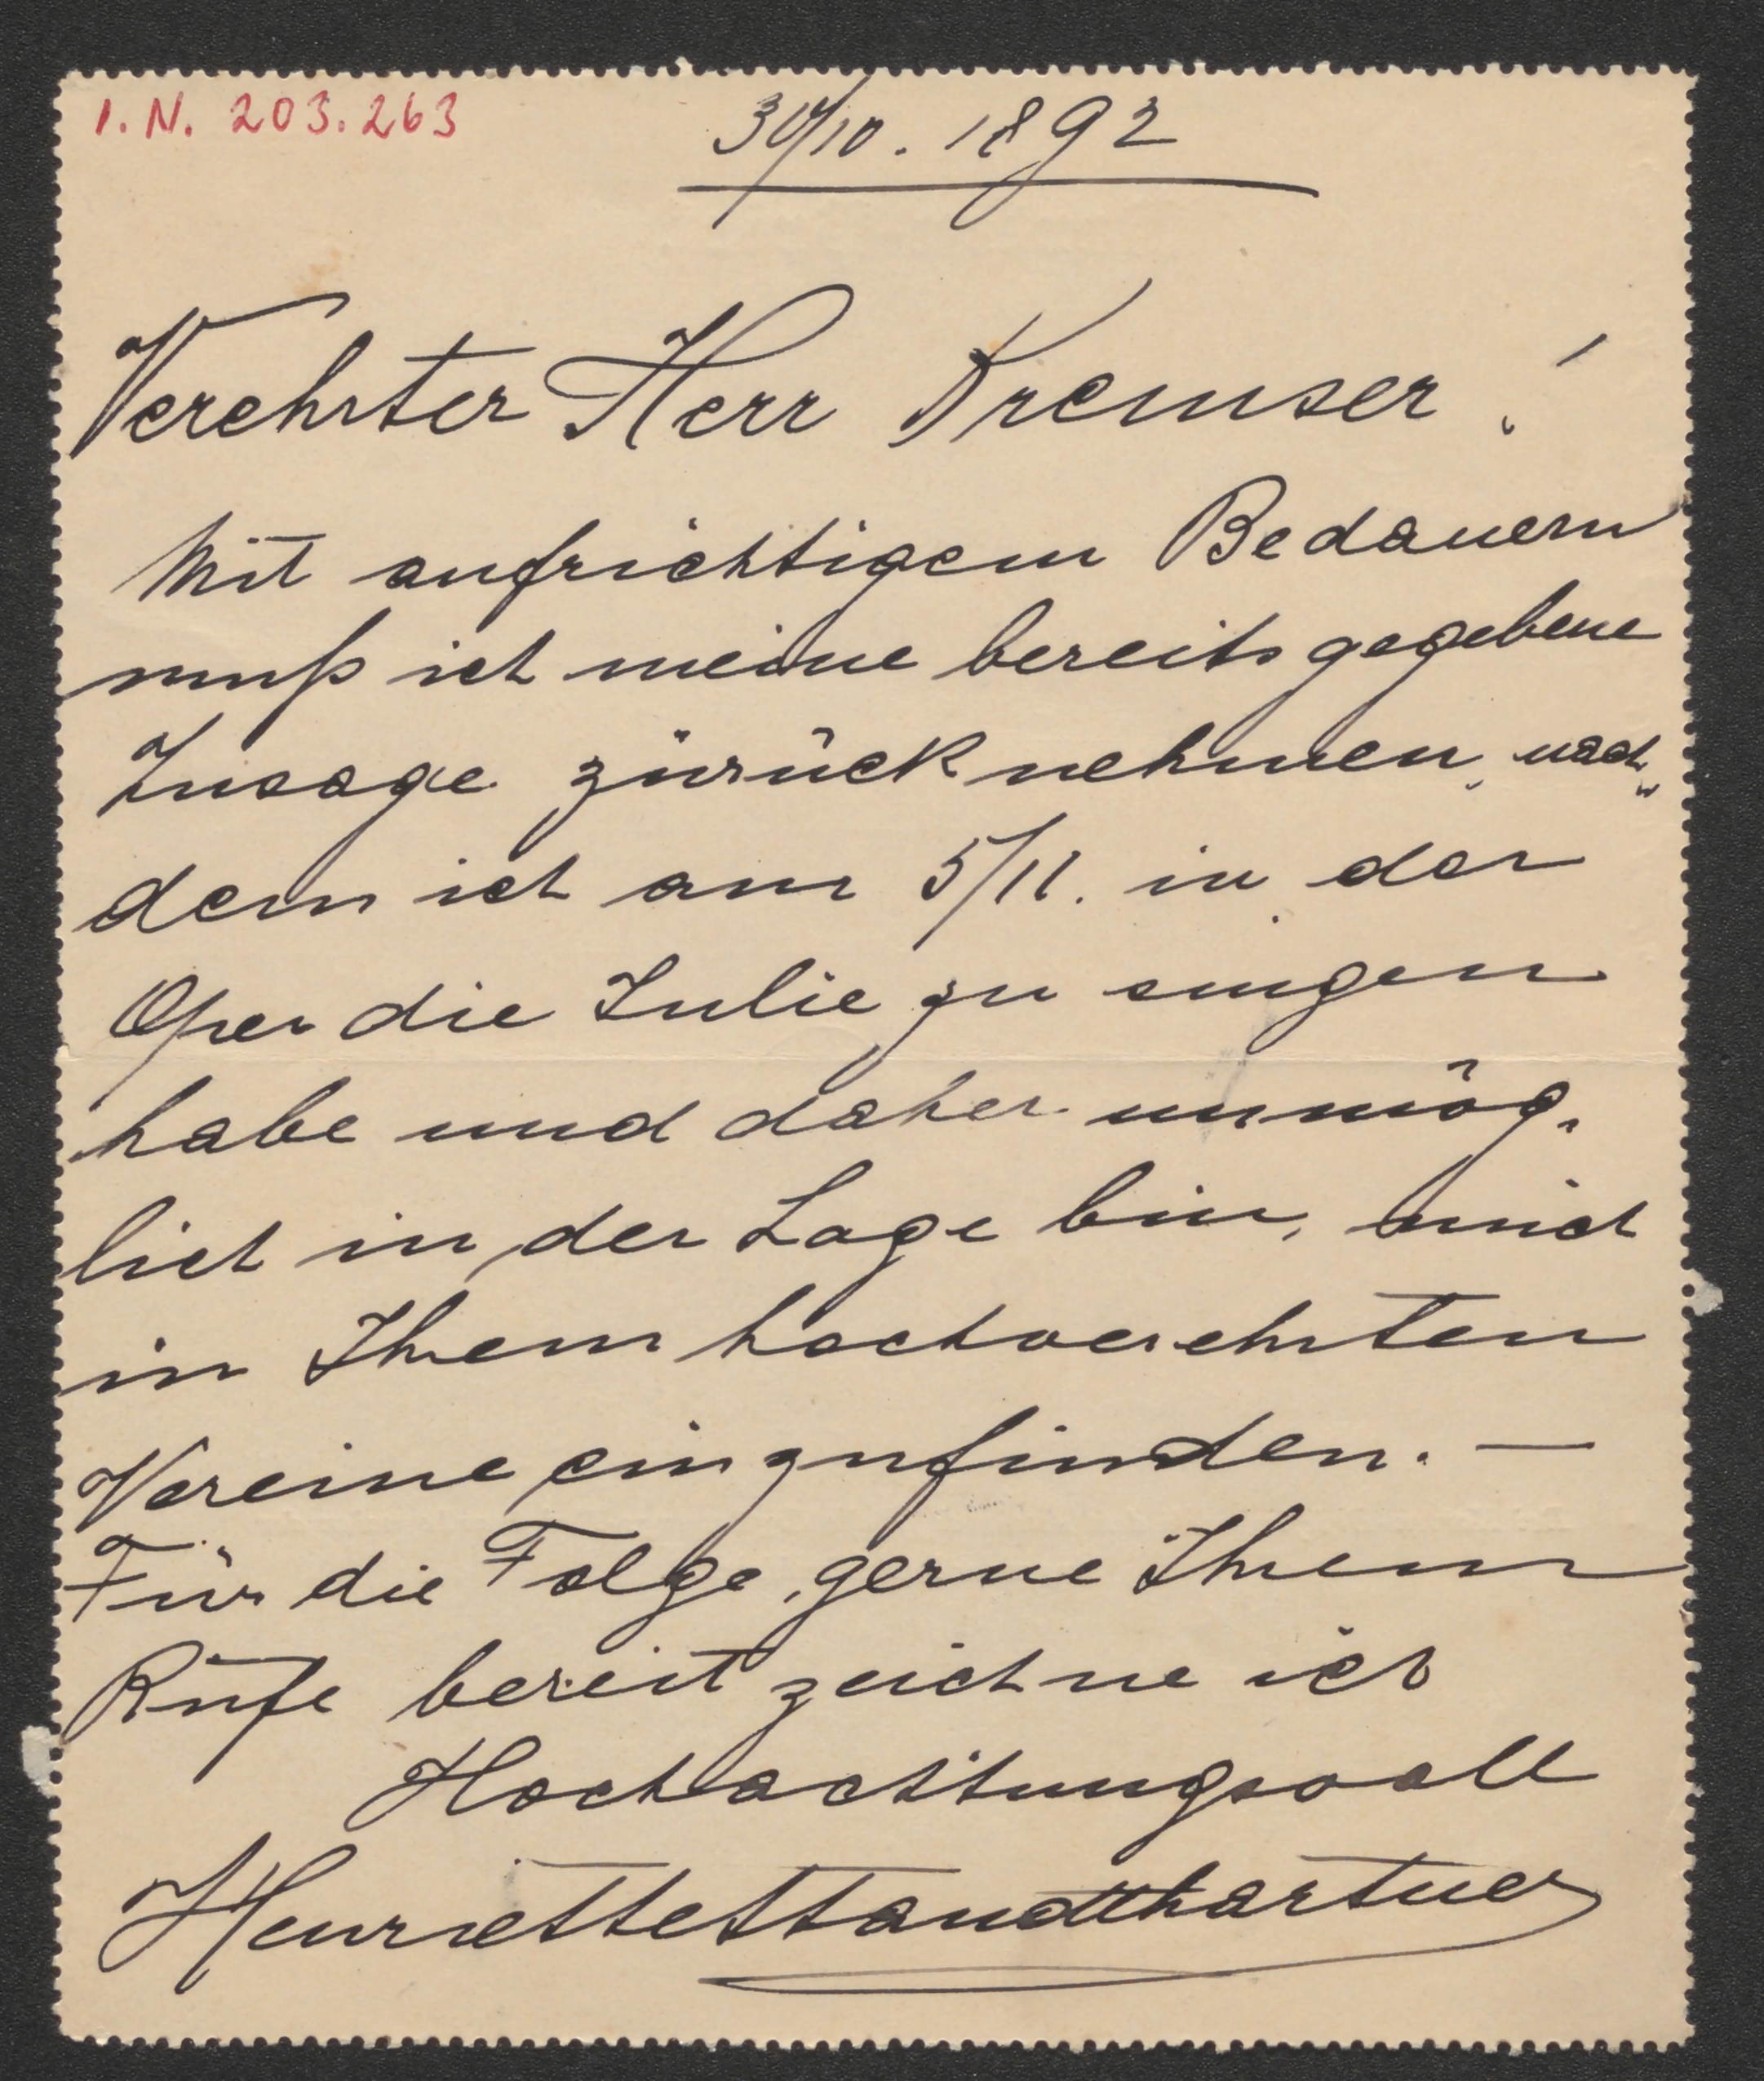 I.N. 203.263
30/10. 1892
Verehrter Herr Kremser!
Mit aufrichtigem Bedauern
muß ich meine bereits gegebene
Zusage zurücknehmen, nach„
dem ich am 5/11. in der
Oper die Julie zu singen
habe und daher unmög„
lich in der Lage bin, mich
in Ihem hochverehrten
Vereine einzufinden. —
Für die Folge, gerne Ihem
Rufe bereit zeichne ich
Hochachtungsvoll
Henriette Standthartner